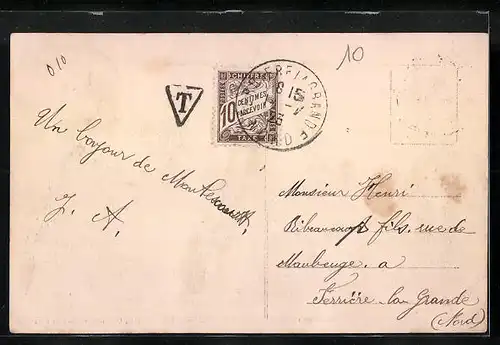 010
10
T
CHIFFRE
10
CENTIMES
A PERCEVOIR
TAXE
FERRIERE LA GRANDE
NORD
Un bonjour de
J. A.
Monsieur Henri
fils, rue de
Maubeuge. a
Ferrière la Grande
(Nord)